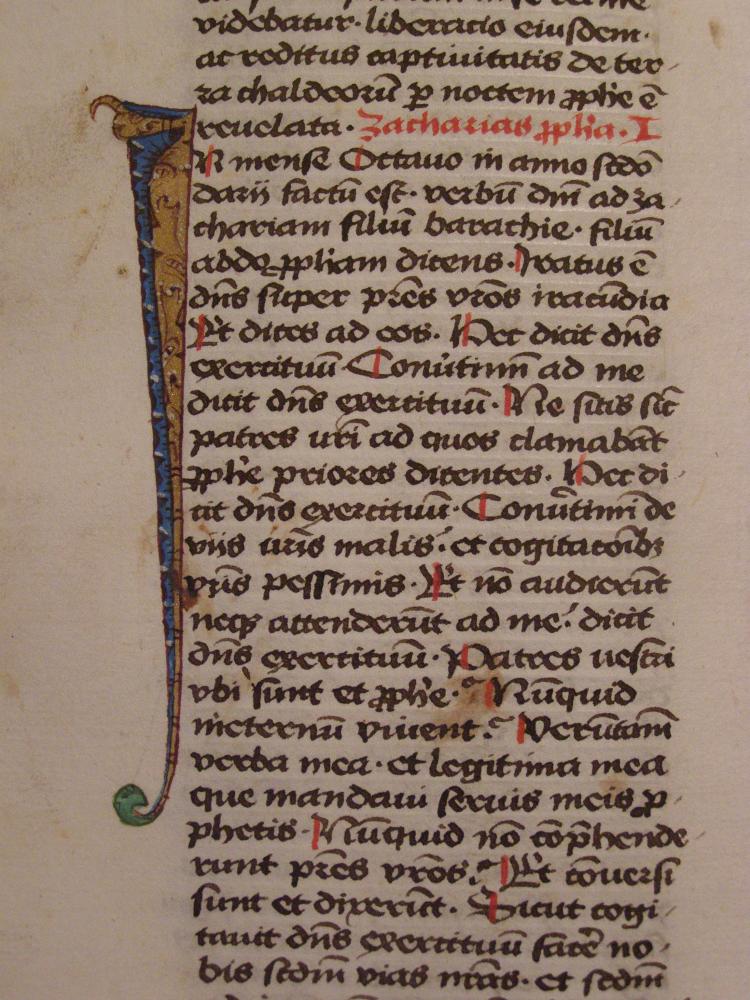 videbatur· liberacio eiusdem·
ac reditus captiuitatis de ter-
ra chaldeorū ꝑ noctem ꝓph̄e ē
reuelata· Zacharias ꝓph̄a· I
N mense Octauo in anno scdō
darii factū est· verbū dn̄i ad za-
chariam filiū barachie· filiū
abdo ꝓph̄am dicens· Iratus ē
dn̄s super pr̄es vr̄os iracūdia
Et dices ad eos· Hec dicit dn̄s
exercituū Conūtimī ad me
dicit dn̄s exercituū· Ne sitis sic̄
patres vr̄i ad quos clamabāt
ꝓph̄e priores dicentes· Hec di-
cit dn̄s exercituū· Conūtimī de
viis vr̄is malis· et cogitacōibꝫ
vr̄is pessimis· Et nō audierūt
neqꝫ attenderūt ad me· dicit
dn̄s exercituū· Patres uestri
vbi sunt et ꝓph̄e· Nūquid
ineternū viuent· Verūtam̄
verba mea· et legitima mea
que mandaui seruis meis ꝓ-
phetis· Nūquid nō cōp̄hende-
runt pr̄es vr̄os· Et cōuersi
sunt et dixerūt· Sicut cogi-
tauit dn̄s exercituū facē no-
bis scdm̄ vias nr̄as· et scdm̄